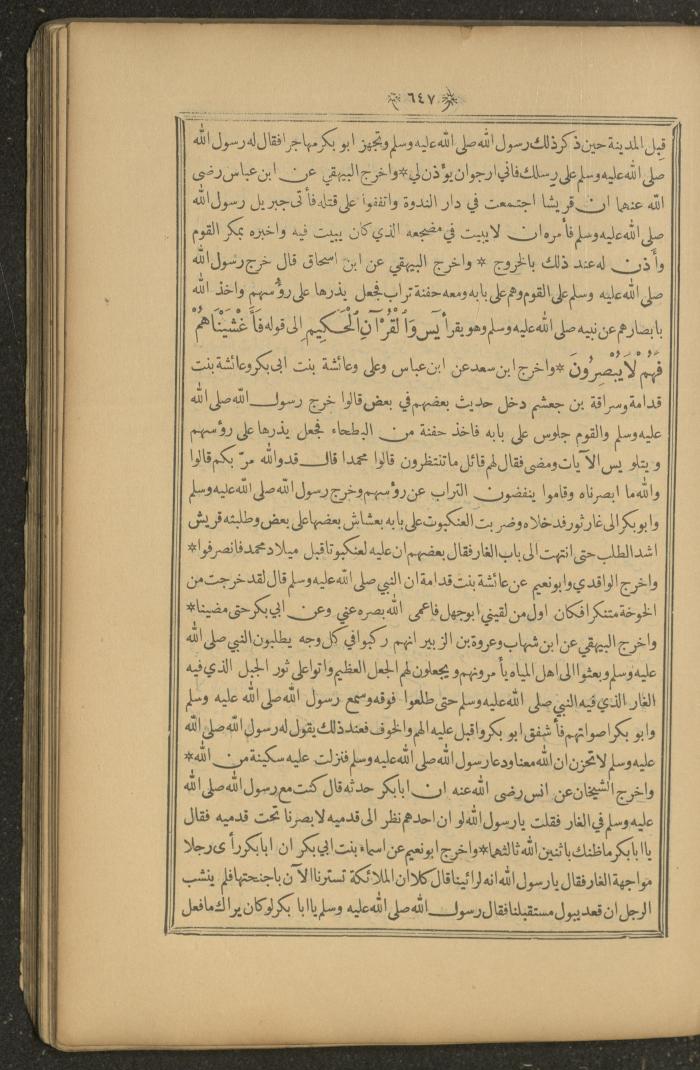 ٦٤٧
قبل المدينة حين ذكر ذلك رسول الله صلى الله عليه وسلم وتجهز ابو بكر مهاجرا فقال له رسول الله
صلى الله عليه وسلم على رسلك فاني ارجوان يؤذن لي * واخرج البيهقي عن ابن عباس رضى
الله عنهما ان قريشا اجتمعت في دار الندوة واتفقوا على قتله فأتى جبريل رسول الله
صلى الله عليه وسلم فأمره ان لا يبيت في مضجعه الذي كان يبيت فيه واخبره بمكر القوم
وأذن له عند ذلك بالخروج * واخرج البيهقي عن ابن اسحاق قال خرج رسول الله
صلى الله عليه وسلم على القوم وهم على بابه ومعه حفنة تراب فجعل يذرها على رؤسهم واخذ الله
بابصارهم عن نبيه صلى الله عليه وسلم وهو يقرأ يٓس وَٱلْقُرْآنِ ٱلْحَكِيمِ الى قوله فَأَغْشَيْنَاهُمْ
فَهُمْ لَا يُبْصِرُونَ * واخرج ابن سعد عن ابن عباس وعلى وعائشة بنت ابى بكر وعائشة بنت
قدامة وسراقة بن جعشم دخل حديث بعضهم في بعض قالوا خرج رسول الله صلى الله
عليه وسلم والقوم جلوس على بابه فاخذ حفنة من البطحاء فجعل يذرها على رؤسهم
ويتلو يس الآيات ومضى فقال لهم قائل ما تنتظرون قالوا محمدا قال قد والله مرّ بكم قالوا
والله ما ابصرناه وقاموا ينفضون التراب عن رؤسهم وخرج رسول الله صلى الله عليه وسلم
وابو بكر الى غار ثور فدخلاه وضربت العنكبوت على بابه بعشاش بعضها على بعض وطلبته قريش
اشد الطلب حتى انتهت الى باب الغار فقال بعضهم ان عليه لعنكبوتا قبل ميلاد محمد فانصرفوا *
واخرج الواقدي وابو نعيم عن عائشة بنت قدامة ان النبي صلى الله عليه وسلم قال لقد خرجت من
الخوخة متنكرا فكان اول من لقيني ابو جهل فاعمى الله بصره عني وعن ابي بكر حتى مضينا *
واخرج البيهقي عن ابن شهاب وعروة بن الزبير انهم ركبوا في كل وجه يطلبون النبي صلى الله
عليه وسلم وبعثوا الى اهل المياه يأمرونهم ويجعلون لهم الجعل العظيم واتوا على ثور الجبل الذي فيه
الغار الذي فيه النبي صلى الله عليه وسلم حتى طلعوا فوقه وسمع رسول الله صلى الله عليه وسلم
وابو بكر اصواتهم فأشفق ابو بكر واقبل عليه الهم والخوف فعند ذلك يقول له رسول الله صلى الله
عليه وسلم لا تحزن ان الله معنا ودعا رسول الله صلى الله عليه وسلم فنزلت عليه سكينة من الله *
واخرج الشيخان عن انس رضى الله عنه ان ابا بكر حدثه قال كنت مع رسول الله صلى الله
عليه وسلم في الغار فقلت يا رسول الله لو ان احدهم نظر الى قدميه لابصرنا تحت قدميه فقال
يا ابا بكر ما ظنك باثنين الله ثالثهما * واخرج ابو نعيم عن اسماء بنت ابي بكر ان ابا بكر رأى رجلا
مواجهة الغار فقال يا رسول الله انه لرائينا قال كلا ان الملائكة تسترنا الآن باجنحتها فلم ينشب
الرجل ان قعد يبول مستقبلنا فقال رسول الله صلى الله عليه وسلم يا ابا بكر لو كان يراك ما فعل